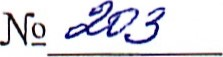 № 203